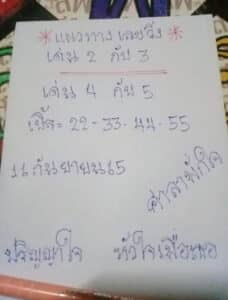 * แนวทางเลขวิ่ง *
เด่น 2 กับ 3
เด่น 4 กับ 5
เบิ้ล= 22-33-44-55
16 กันยายน65
ศาลาพักใจ
ปริญญาใจ หัวใจเมื่อพอ